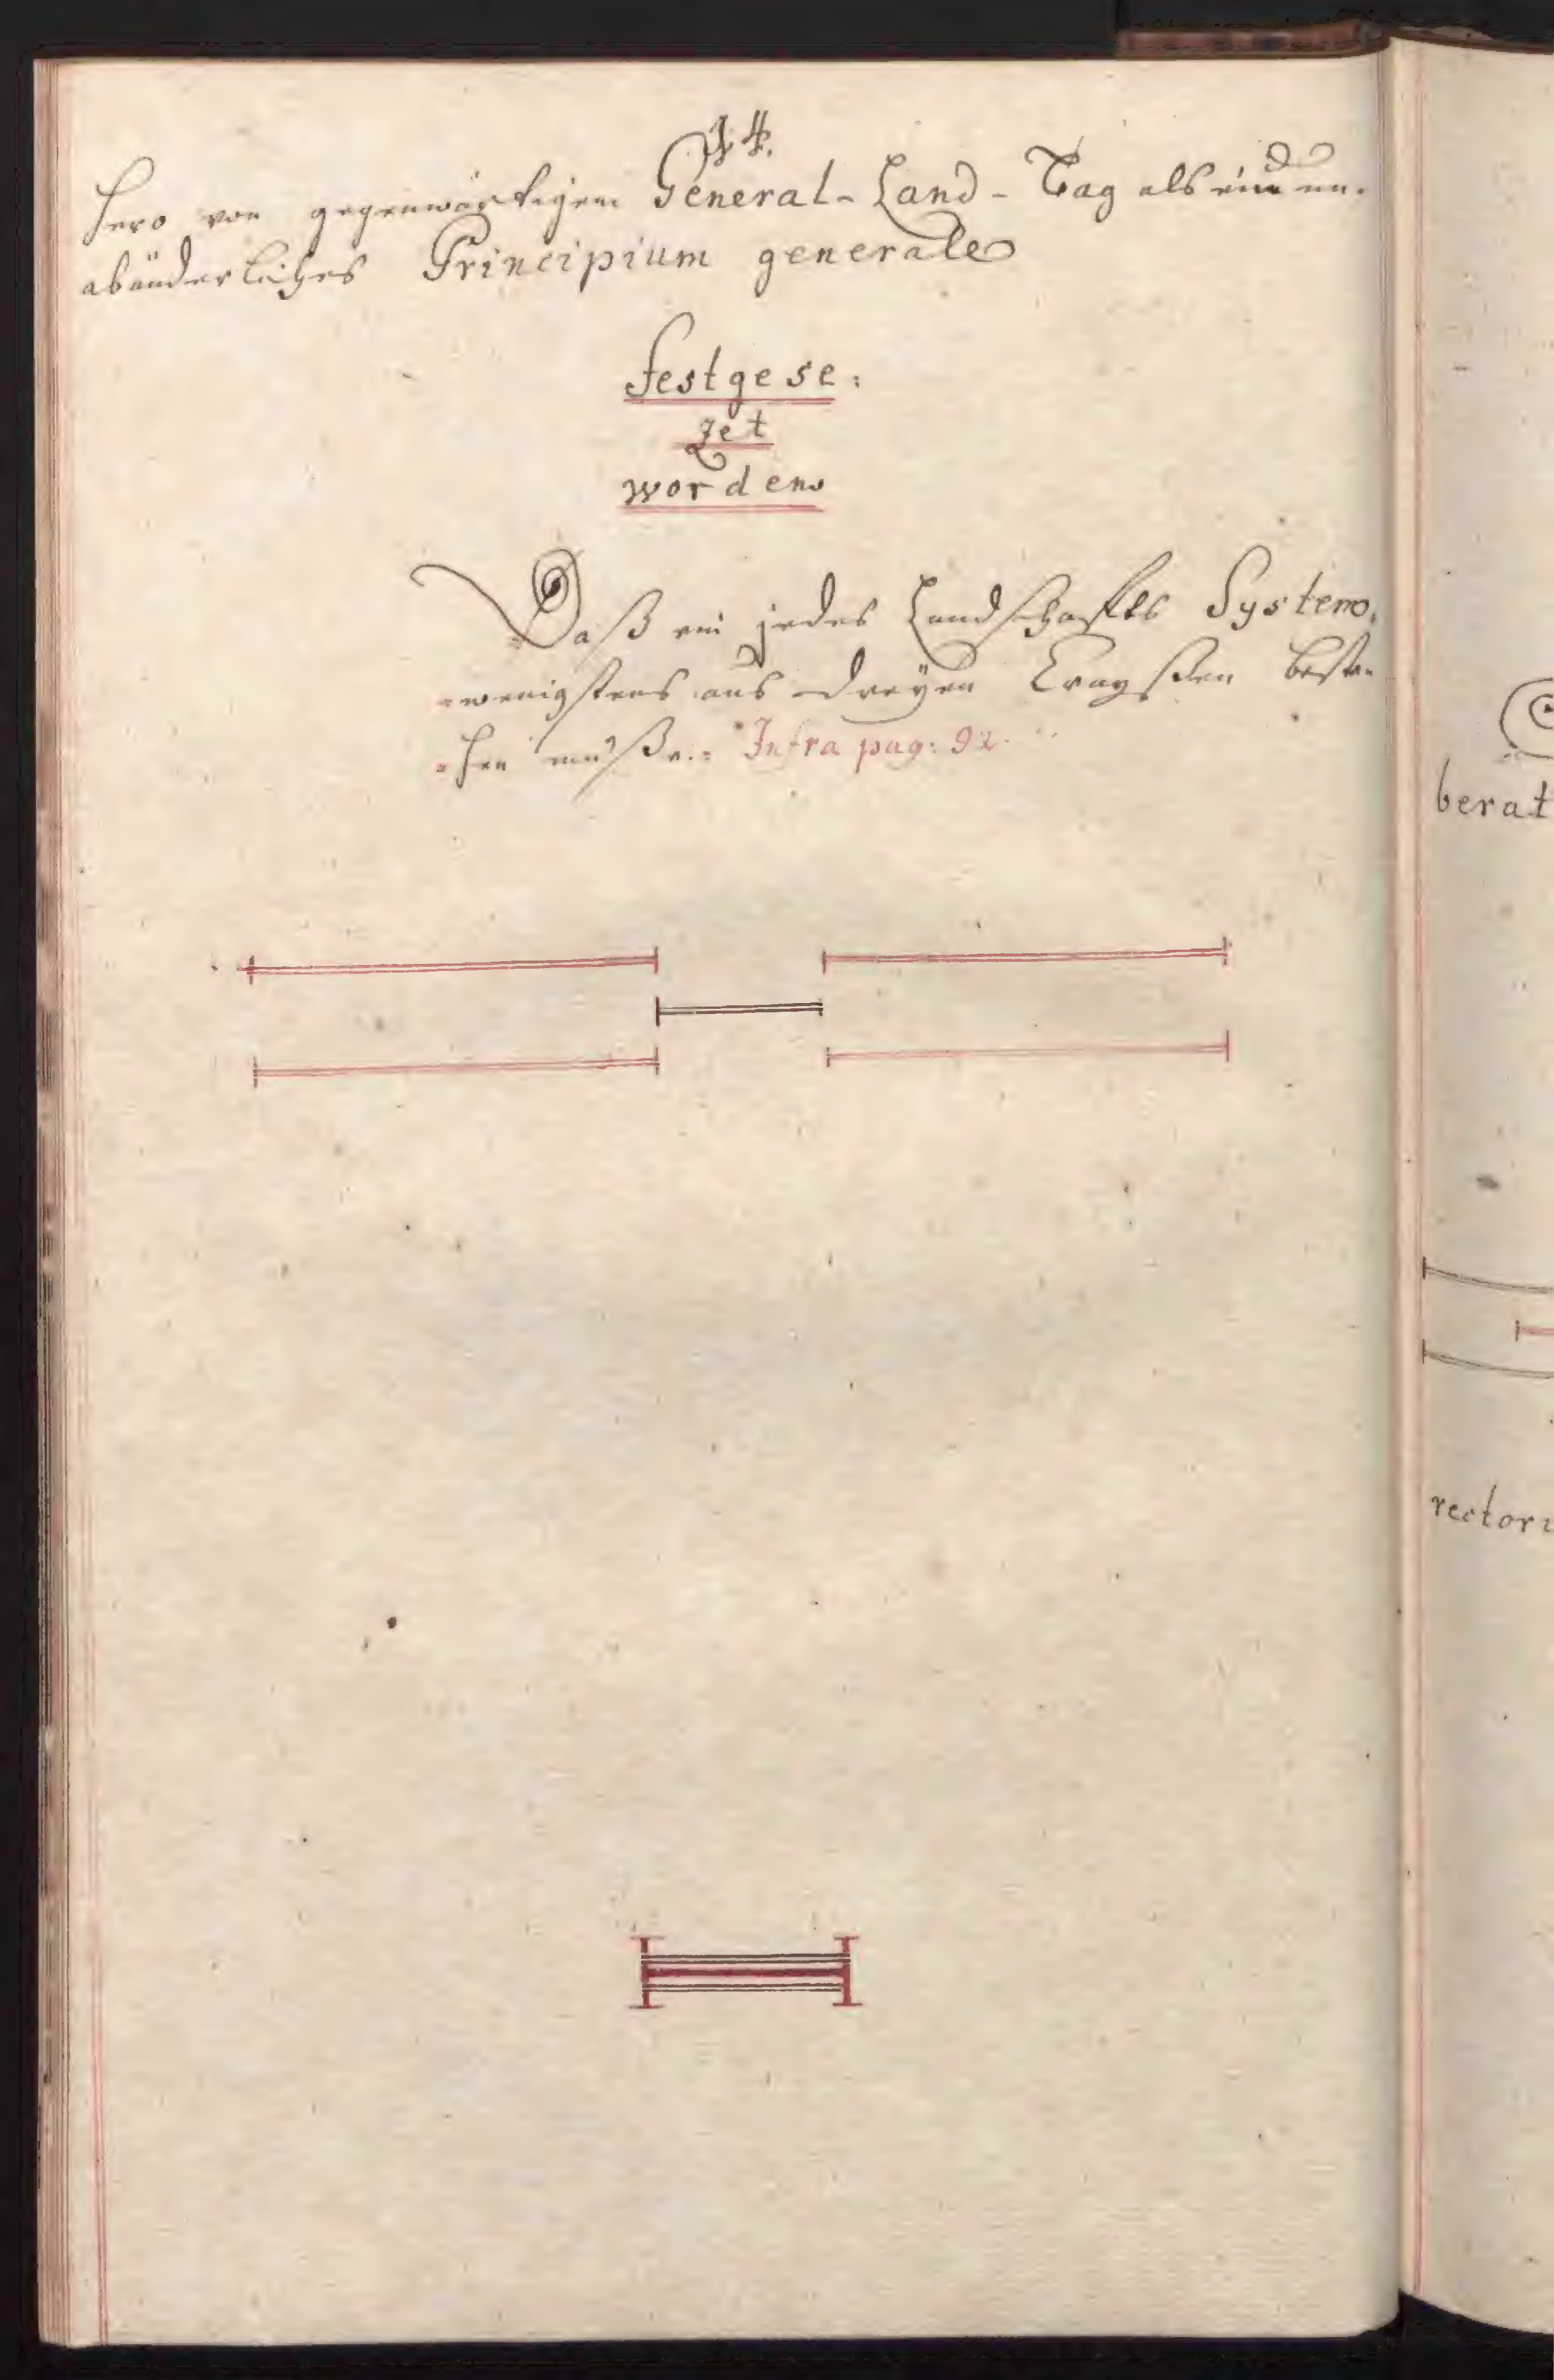 14.
hero von gegenwärtigem General-Land-Tag als ein un-
abänderliches Principium generale
festgese:
zet
worden
Daß ein jedes Landschaffts System,
wenigstens aus dreÿen Craysen beste-
hen müße.= Infra pag: 92.
berat
rectori